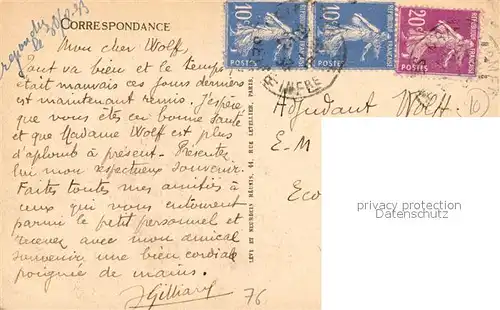 CORRESPONDANCE
Mon cher Wolf,
Tout va bien et le temps qui
était mauvais ces jours derniers
est maintenant remis. J'espère
que vous êtes en bonne santé
et que Madame Wolf est plus
d'aplomb à présent. Présentez
lui mon respectueux souvenir.
Faites toutes mes amitiés à
ceux qui vous entourent
parmi le petit personnel et
recevez avec mon amical
souvenir une bien cordiale
poignée de mains.
J Gilliard
76
LÉVY ET NEURDEIN RÉUNIS, 44, RUE LETELLIER, PARIS
10c
RÉPUBLIQUE FRANÇAISE
POSTES
10c
RÉPUBLIQUE FRANÇAISE
POSTES
20c
RÉPUBLIQUE FRANÇAISE
POSTES
INFRE
Adjudant Wolff
E-M
Eco
10
privacy protection
Datenschutz